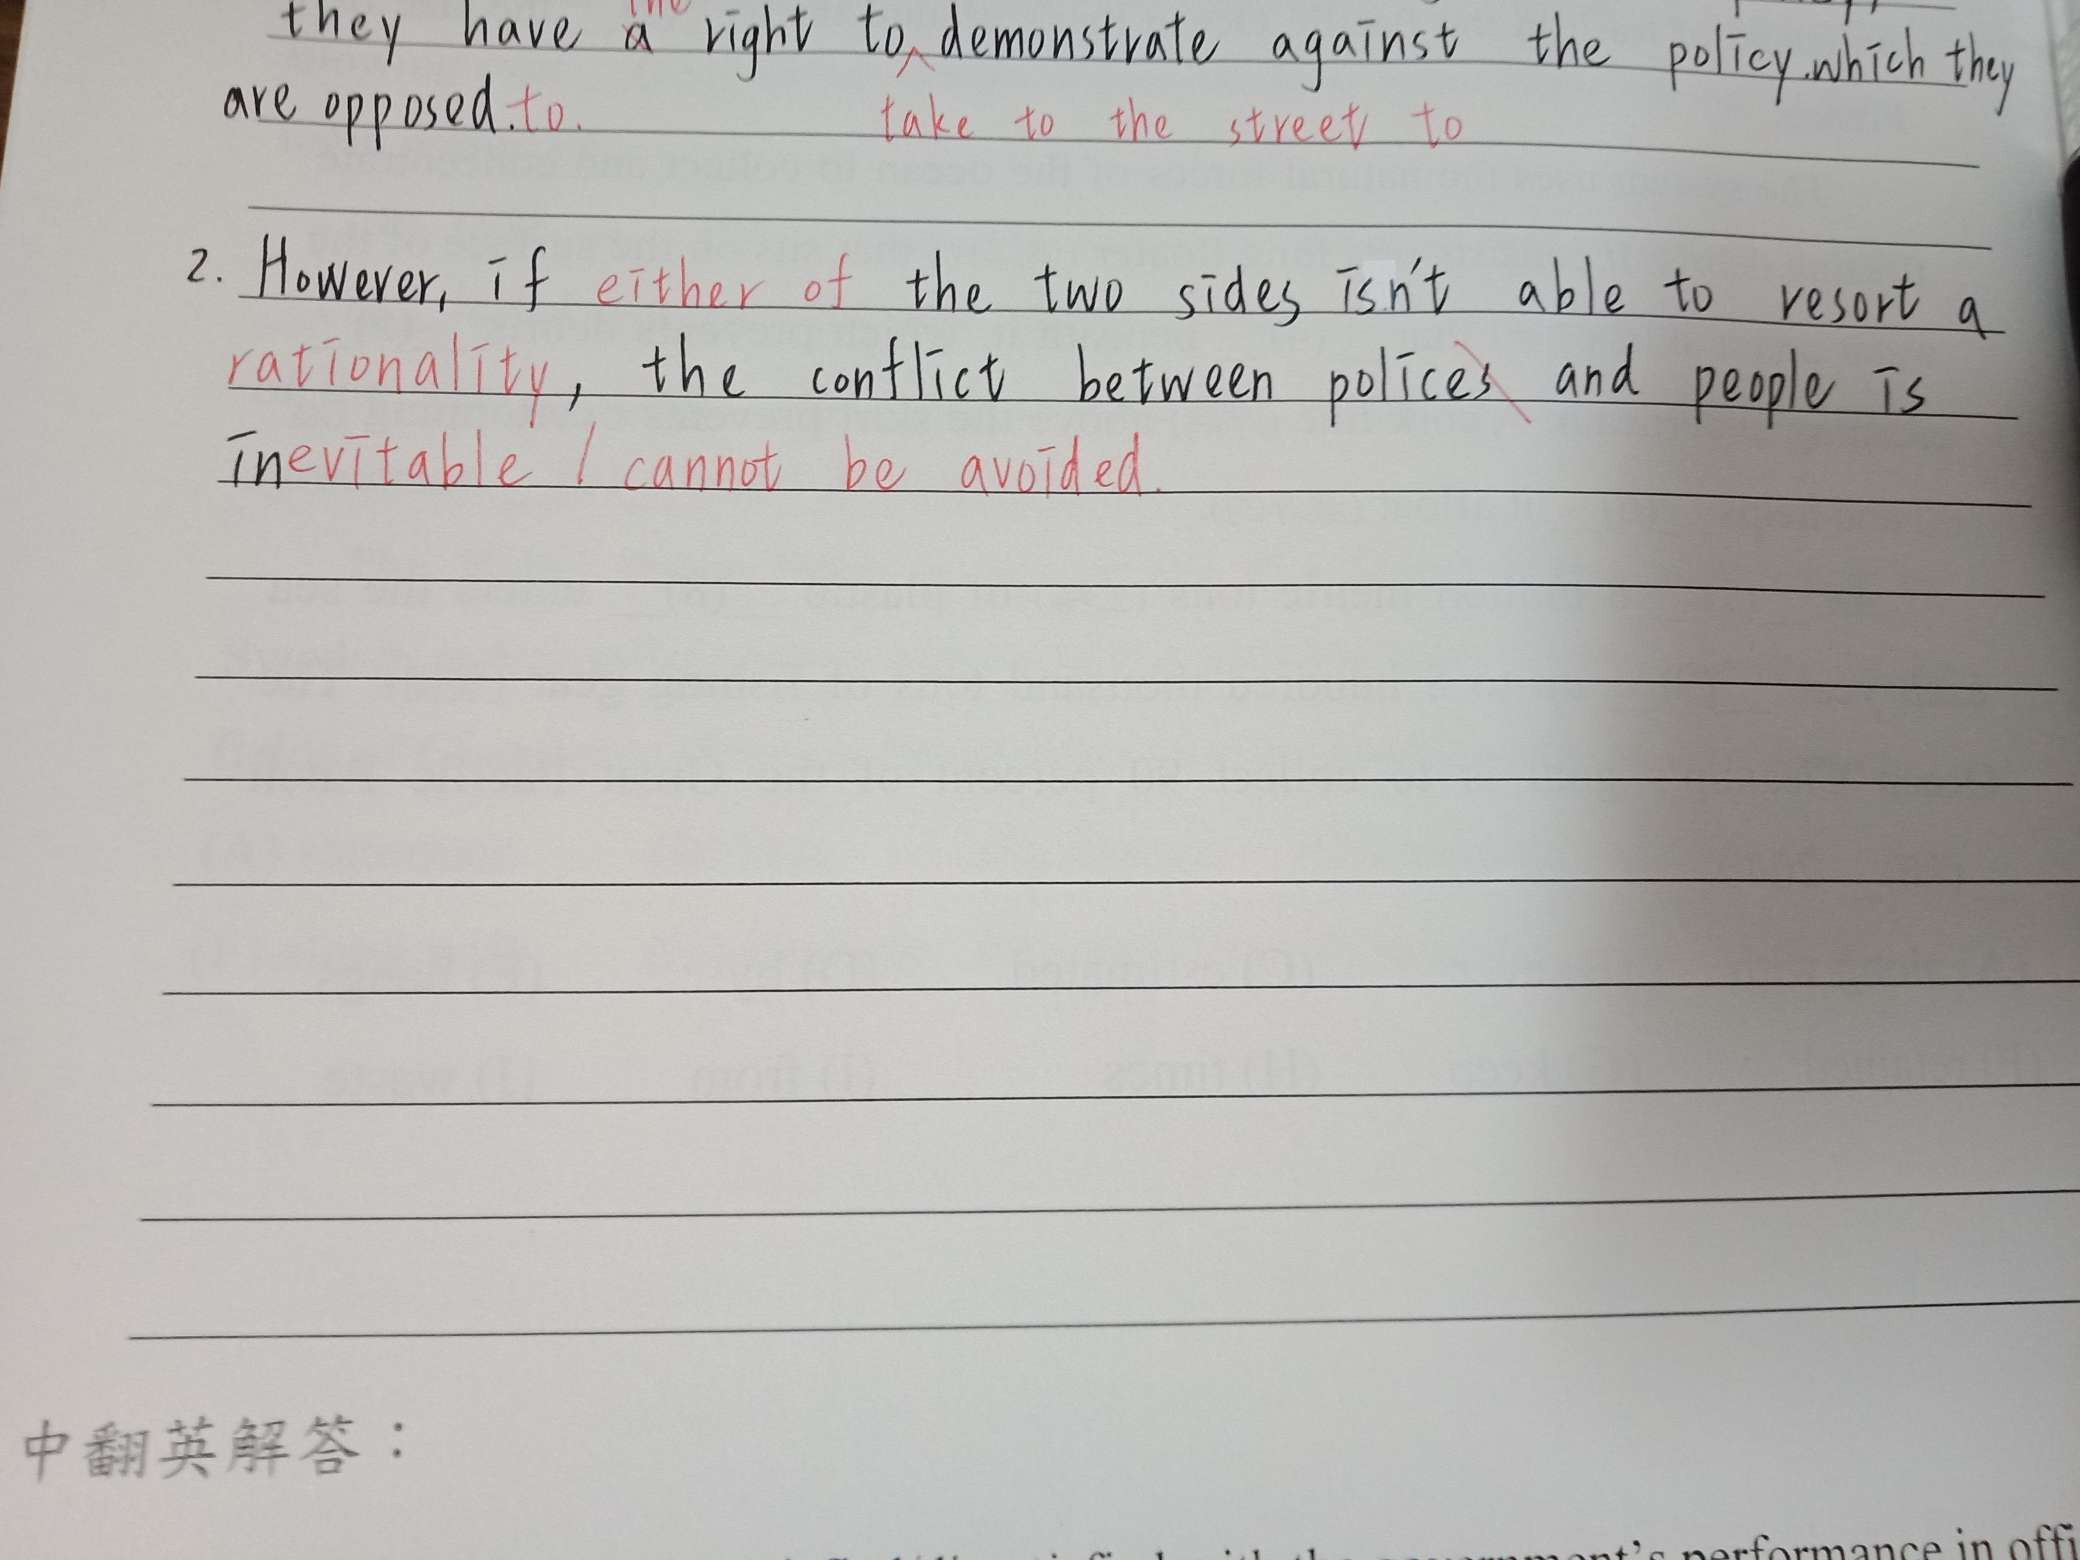 the
they have a right to demonstrate against the policy which they
are opposed. to.
take to the street to
2. However, if either of the two sides isn't able to resort a
rationality, the conflict between polices and people is
inevitable / cannot be avoided.
中翻英解答：
government's performance in offi